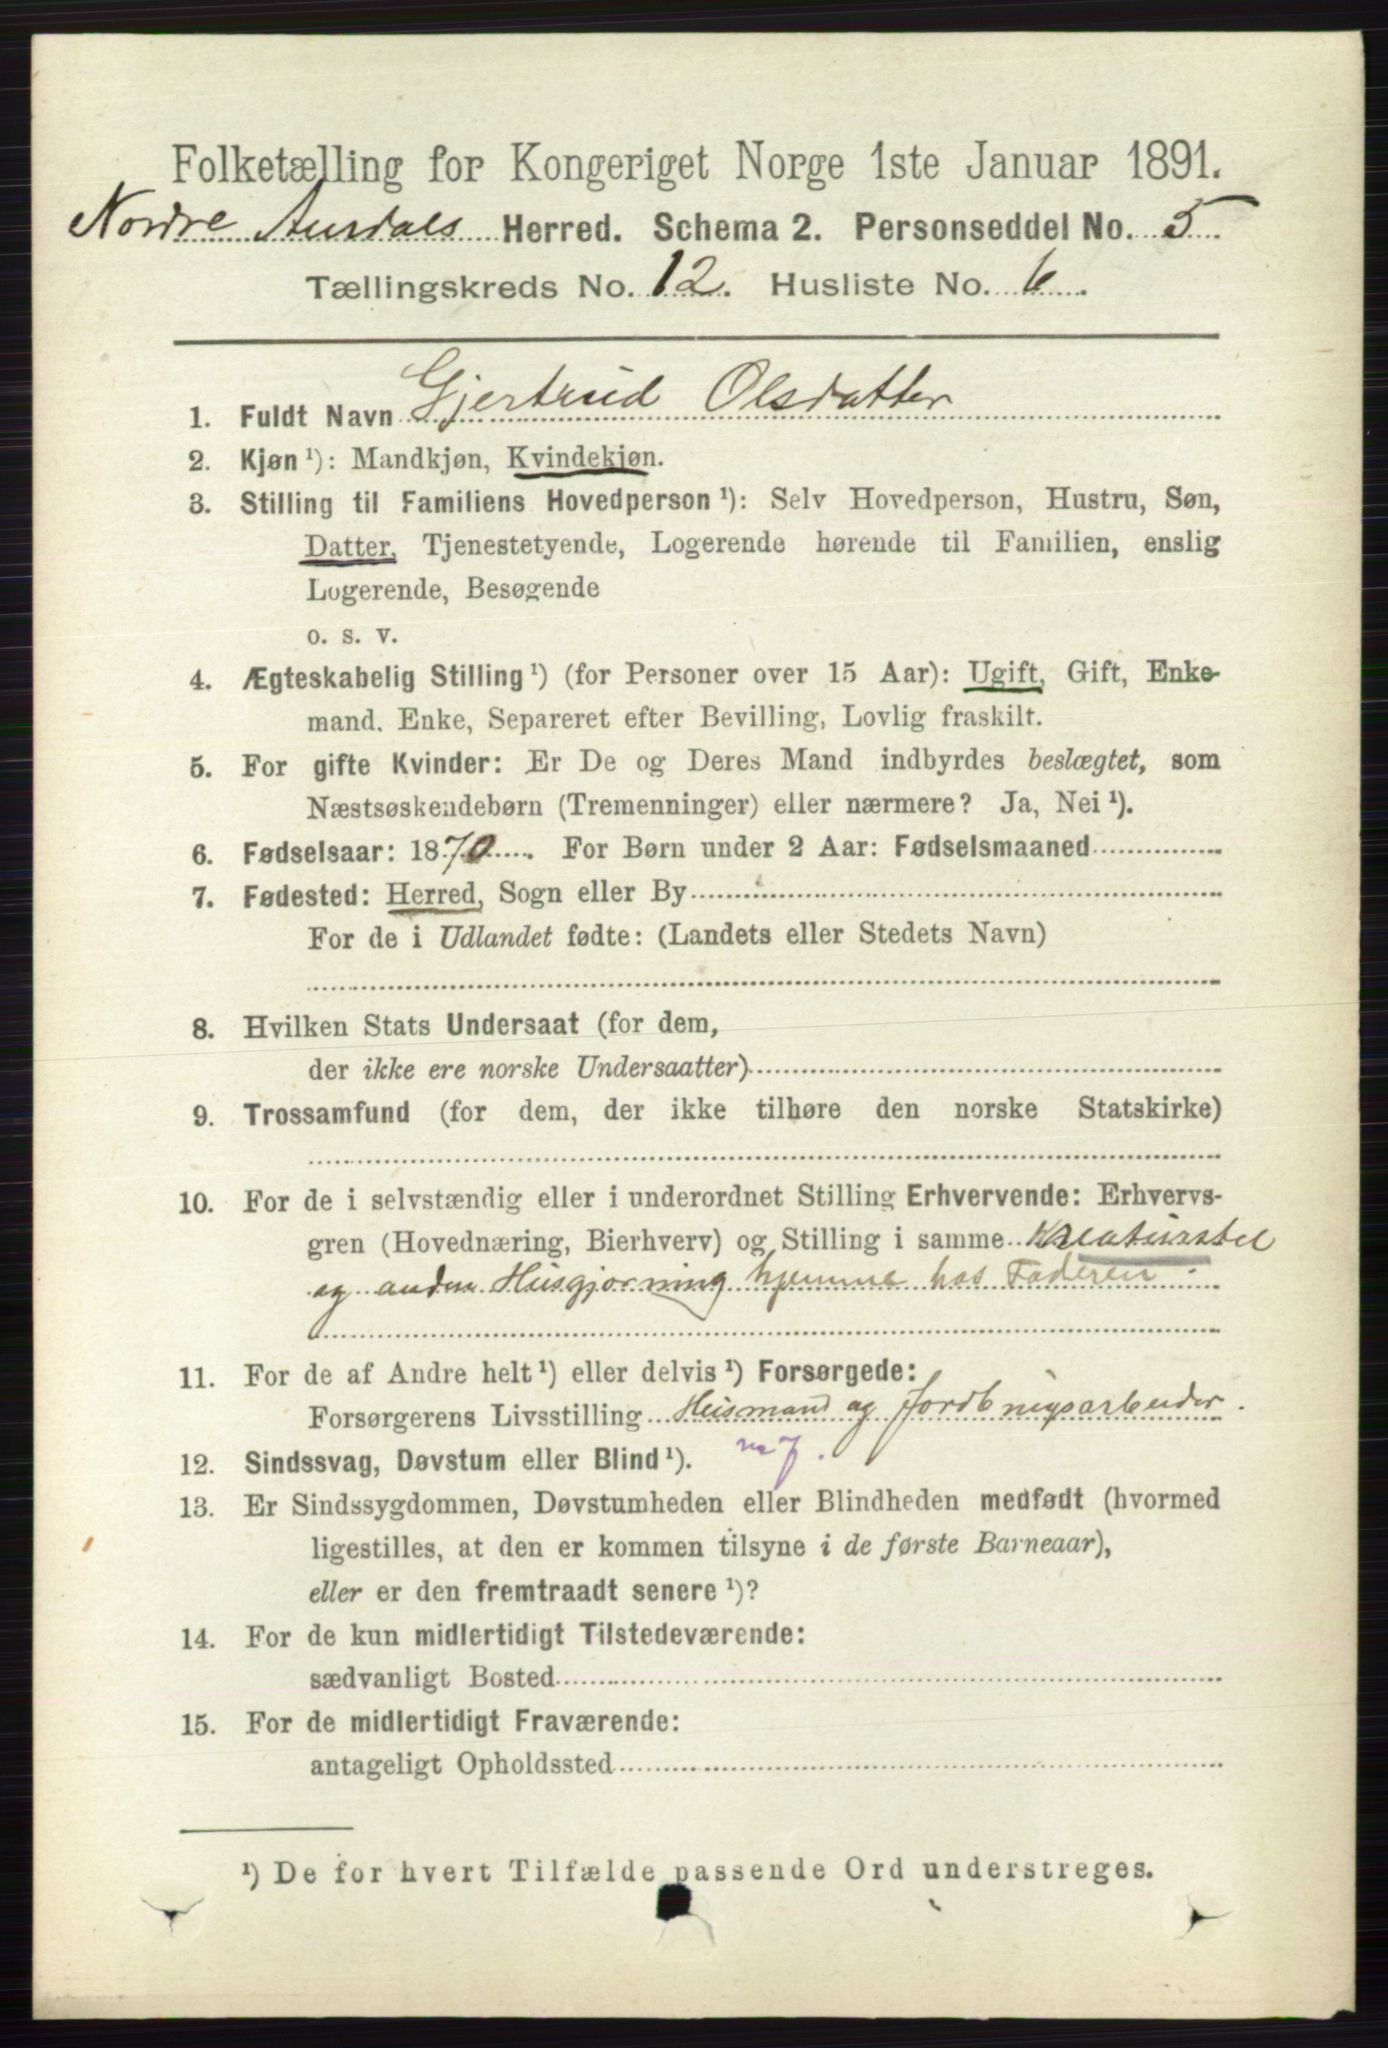 Folketælling for Kongeriget Norge 1ste Januar 1891.
Nordre Aurdals Herred. Schema 2. Personseddel No. 5
Tællingskreds No. 12. Husliste No. 6.
1. Fuldt Navn Gjertrud Olsdatter
2. Kjøn ¹): Mandkjøn, Kvindekjøn.
3. Stilling til Familiens Hovedperson ¹): Selv Hovedperson, Hustru, Søn,
Datter, Tjenestetyende, Logerende hørende til Familien, enslig
Logerende, Besøgende
o. s. v.
4. Ægteskabelig Stilling ¹) (for Personer over 15 Aar): Ugift, Gift, Enke-
mand, Enke, Separeret efter Bevilling, Lovlig fraskilt.
5. For gifte Kvinder: Er De og Deres Mand indbyrdes beslægtet, som
Næstsøskendebørn (Tremenninger) eller nærmere? Ja, Nei ¹).
6. Fødselsaar: 1870. For Børn under 2 Aar: Fødselsmaaned
7. Fødested: Herred, Sogn eller By
For de i Udlandet fødte: (Landets eller Stedets Navn)
8. Hvilken Stats Undersaat (for dem,
der ikke ere norske Undersaatter)
9. Trossamfund (for dem, der ikke tilhøre den norske Statskirke)
10. For de i selvstændig eller i underordnet Stilling Erhvervende: Erhvervs-
gren (Hovednæring, Bierhverv) og Stilling i samme Kreaturstel
og anden Husgjørning hjemme hos Faderen
11. For de af Andre helt ¹) eller delvis ¹) Forsørgede:
Forsørgerens Livsstilling Husmand og Jordbrugsarbeider.
12. Sindssvag, Døvstum eller Blind ¹).
13. Er Sindssygdommen, Døvstumheden eller Blindheden medfødt (hvormed
ligestilles, at den er kommen tilsyne i de første Barneaar),
eller er den fremtraadt senere ¹)?
14. For de kun midlertidigt Tilstedeværende:
sædvanligt Bosted
15. For de midlertidigt Fraværende:
antageligt Opholdssted
¹) De for hvert Tilfælde passende Ord understreges.